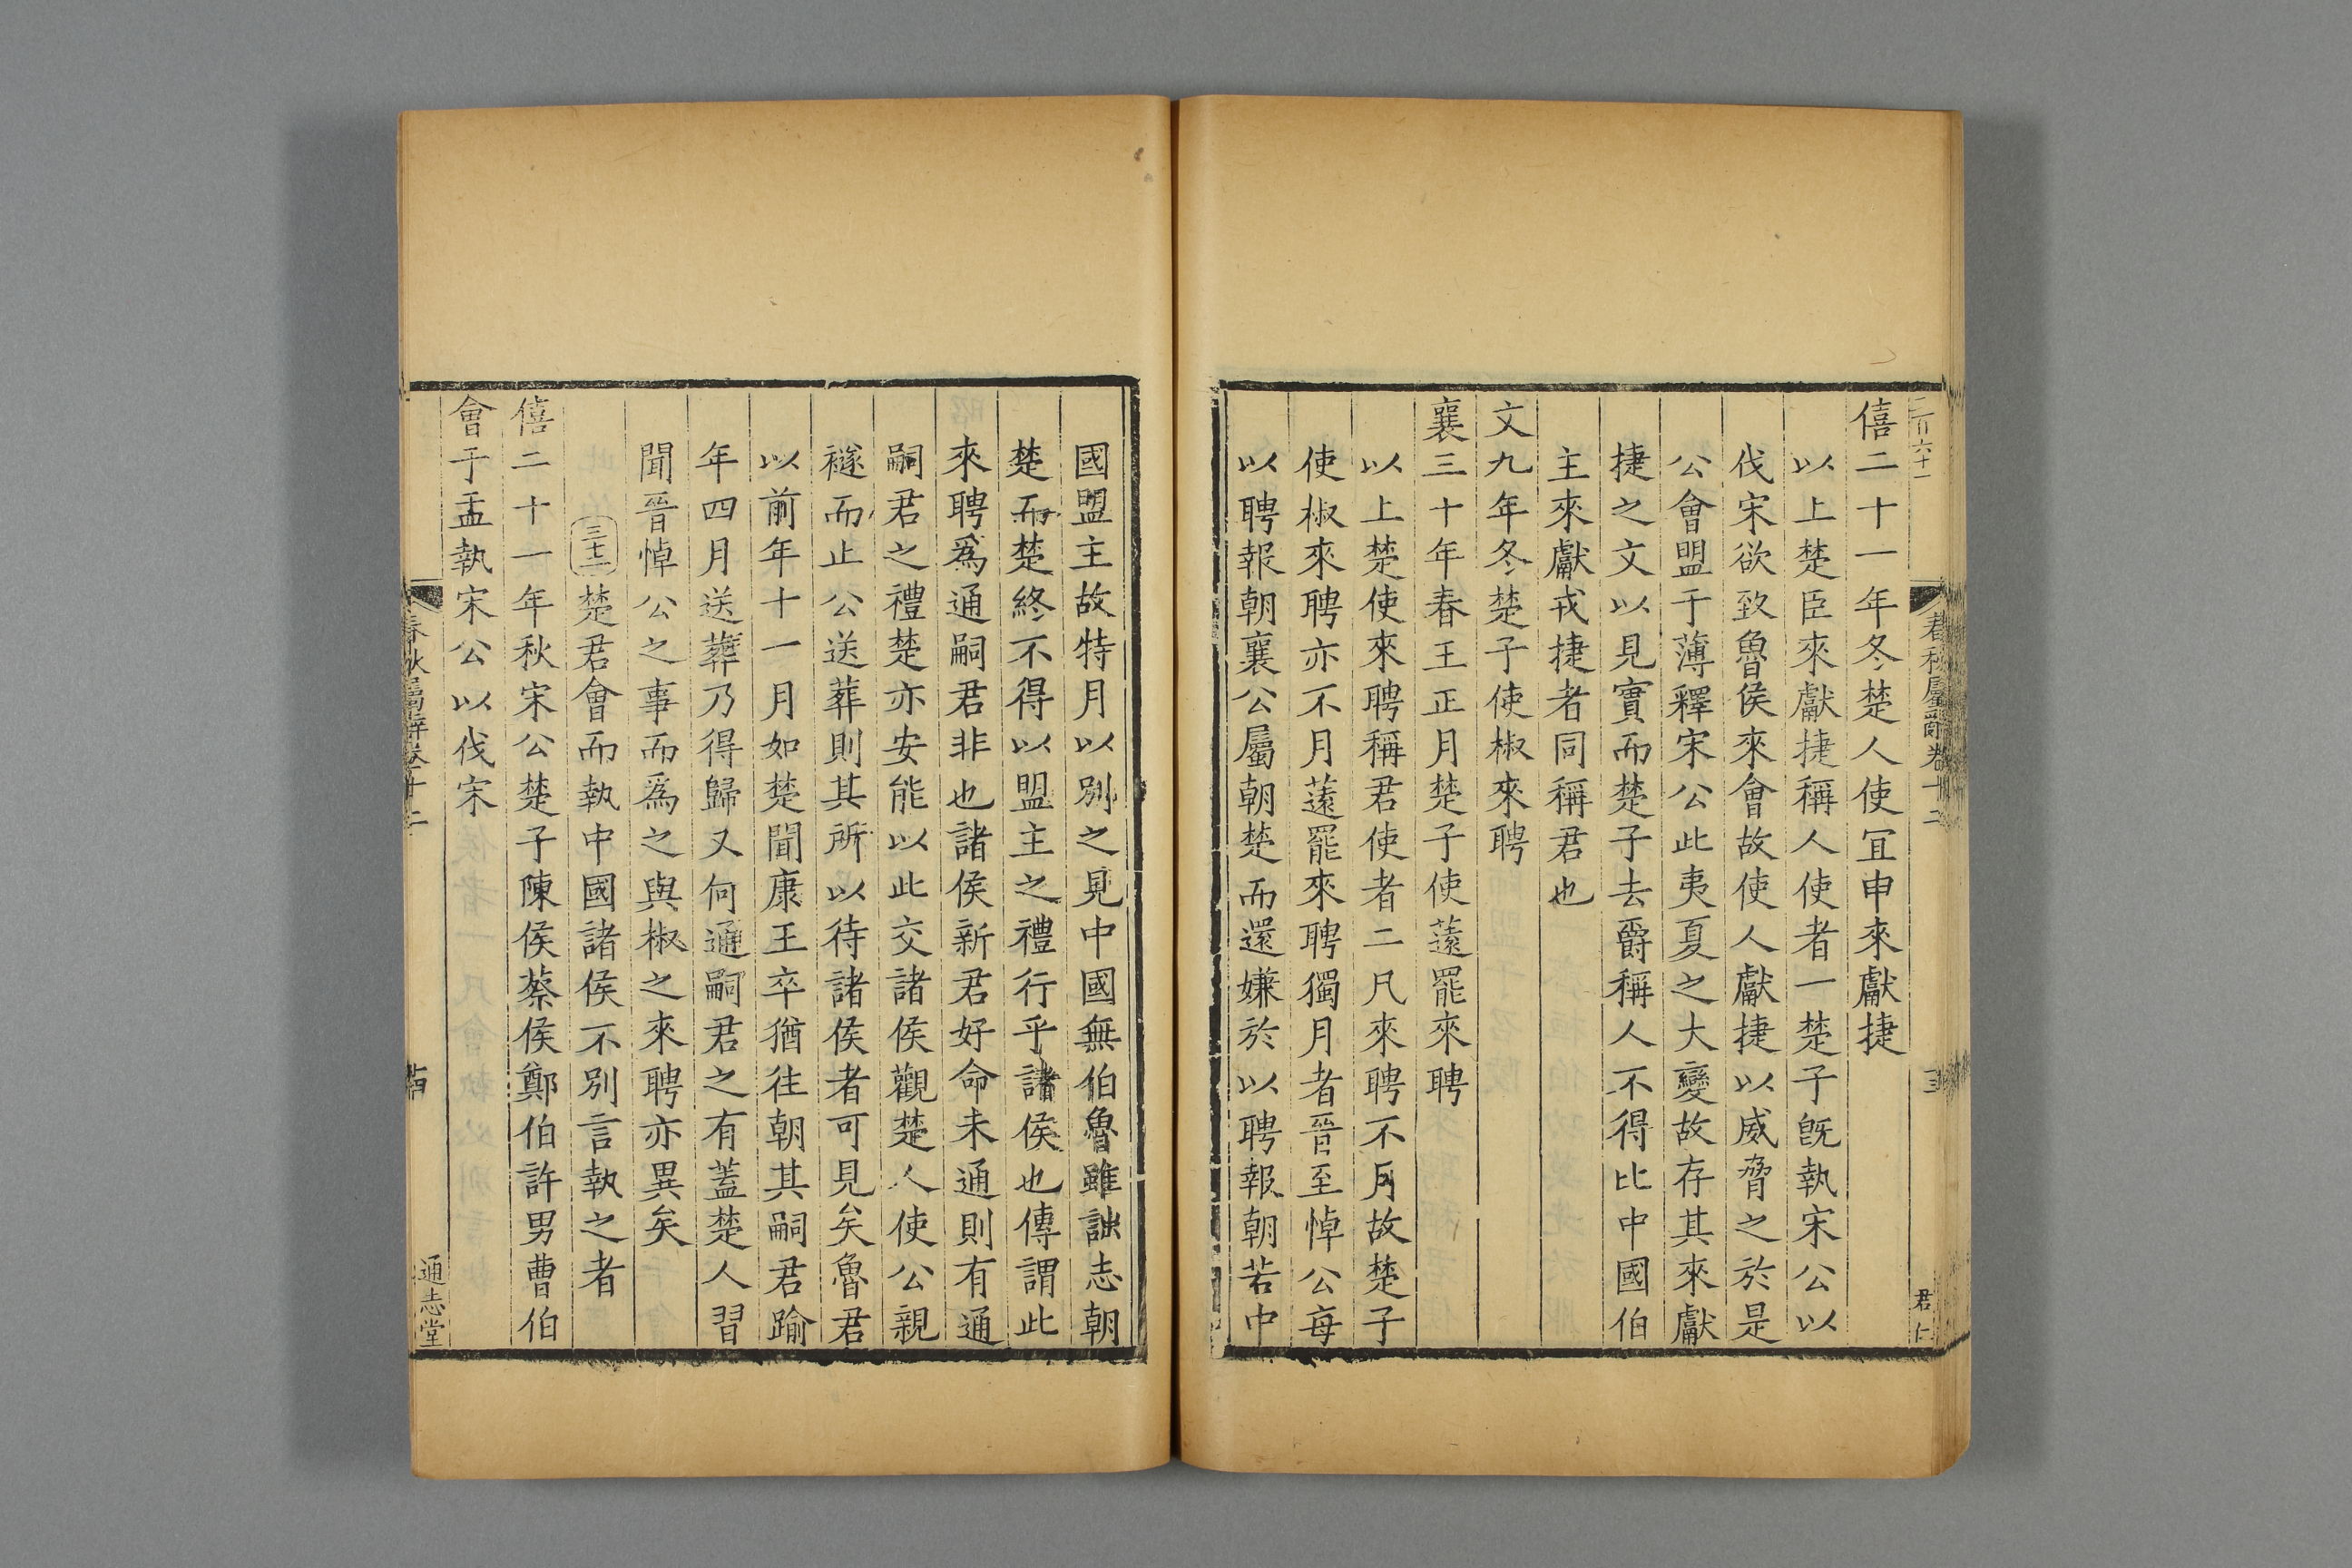 二百六十一
春秋屬辭卷十二
君仁
僖二十一年冬楚人使宜申來獻捷
以上楚臣來獻捷稱人使者一楚子旣執宋公以
伐宋欲致魯侯來會故使人獻捷以威脅之於是
公會盟于薄釋宋公此夷夏之大變故存其來獻
捷之文以見實而楚子去爵稱人不得比中國伯
主來獻戎捷者同稱君也
文九年冬楚子使椒來聘
襄三十年春王正月楚子使薳罷來聘
以上楚使來聘稱君使者二凡來聘不月故楚子
使椒來聘亦不月薳罷來聘獨月者晉至悼公每
以聘報朝襄公屬朝楚而還嫌於以聘報朝若中
國盟主故特月以別之見中國無伯魯雖詘志朝
楚而楚終不得以盟主之禮行乎諸侯也傳謂此
來聘爲通嗣君非也諸侯新君好命未通則有通
嗣君之禮楚亦安能以此交諸侯觀楚人使公親
襚而止公送葬則其所以待諸侯者可見矣魯君
以前年十一月如楚聞康王卒猶往朝其嗣君踰
年四月送葬乃得歸又何通嗣君之有蓋楚人習
聞晉悼公之事而爲之與椒之來聘亦異矣
三十二楚君會而執中國諸侯不別言執之者
僖二十一年秋宋公楚子陳侯蔡侯鄭伯許男曹伯
會于盂執宋公以伐宋
春秋屬辭卷十二
通志堂